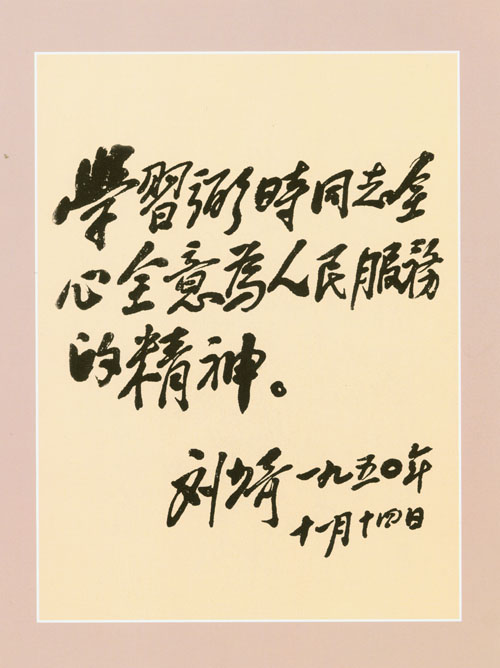 學習弼時同志全
心全意為人民服務
的精神。
刘少奇 一九五〇年
十一月十四日